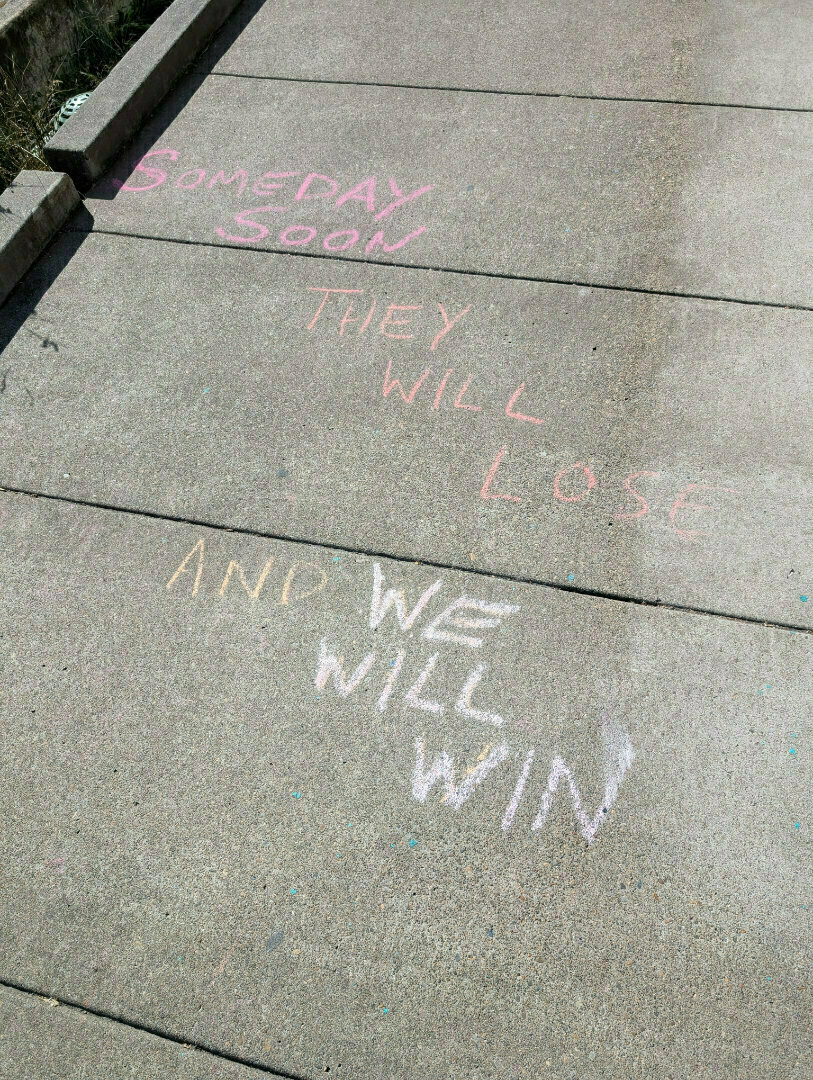 SOMEDAY
SOON
THEY
WILL
LOSE
AND WE
WILL
WIN